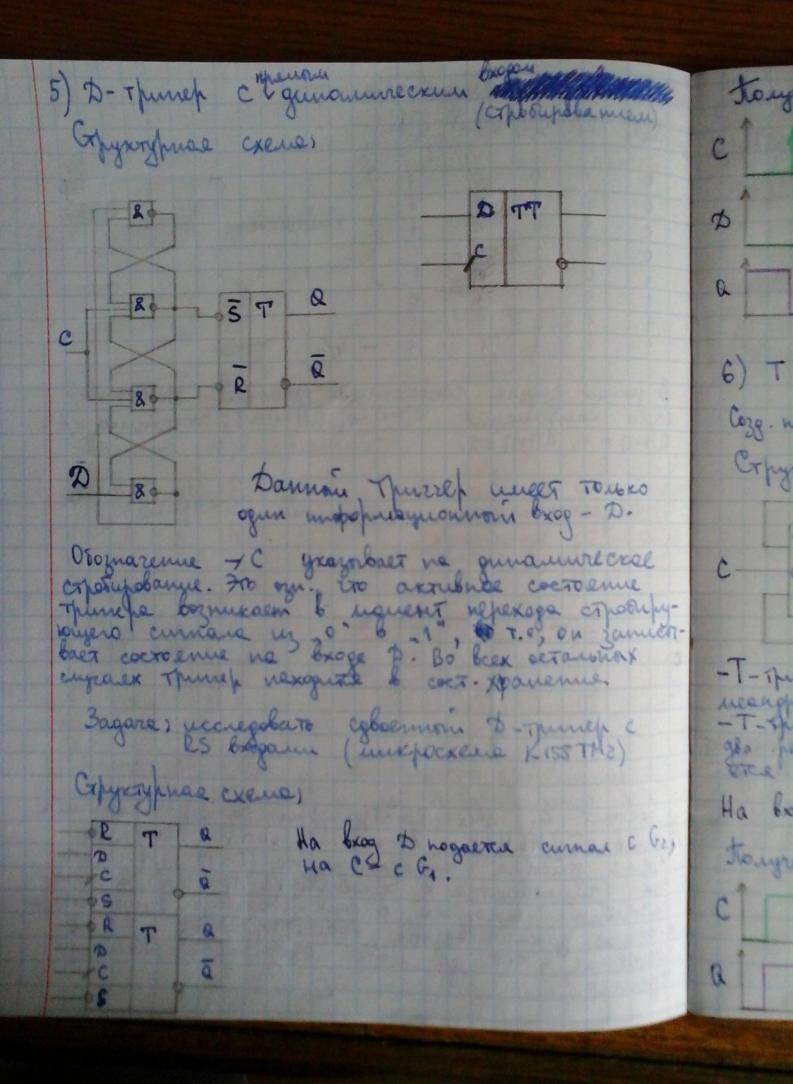 5) D-тригер с прямым динамическим входом
(стробированием)
Структурная схема:
&
&
&
&
C
D
S̅ T Q
R̅ Q̅
D TT
C
Данный триггер имеет только
один информационный вход - D.
Обозначение → C указывает на динамическое
стробирование. Это озн., что активное состояние
тригера возникает в момент перехода стробиру-
ющего сигнала из "0" в "1", т.е., он записы-
вает состояние на входе D. Во всех остальных
случаях тригер находится в сост. хранения.
Задача: исследовать сдвоенный D-тригер с
RS входами (микросхема К155ТМ2)
Структурная схема:
R T Q
D
C Q̅
S
R T Q
D
C Q̅
S
На вход D подается сигнал с G₂,
на C - с G₁.
C
D
Q
6) Т
Созд.
C
-Т-
-Т-
На
C
Q